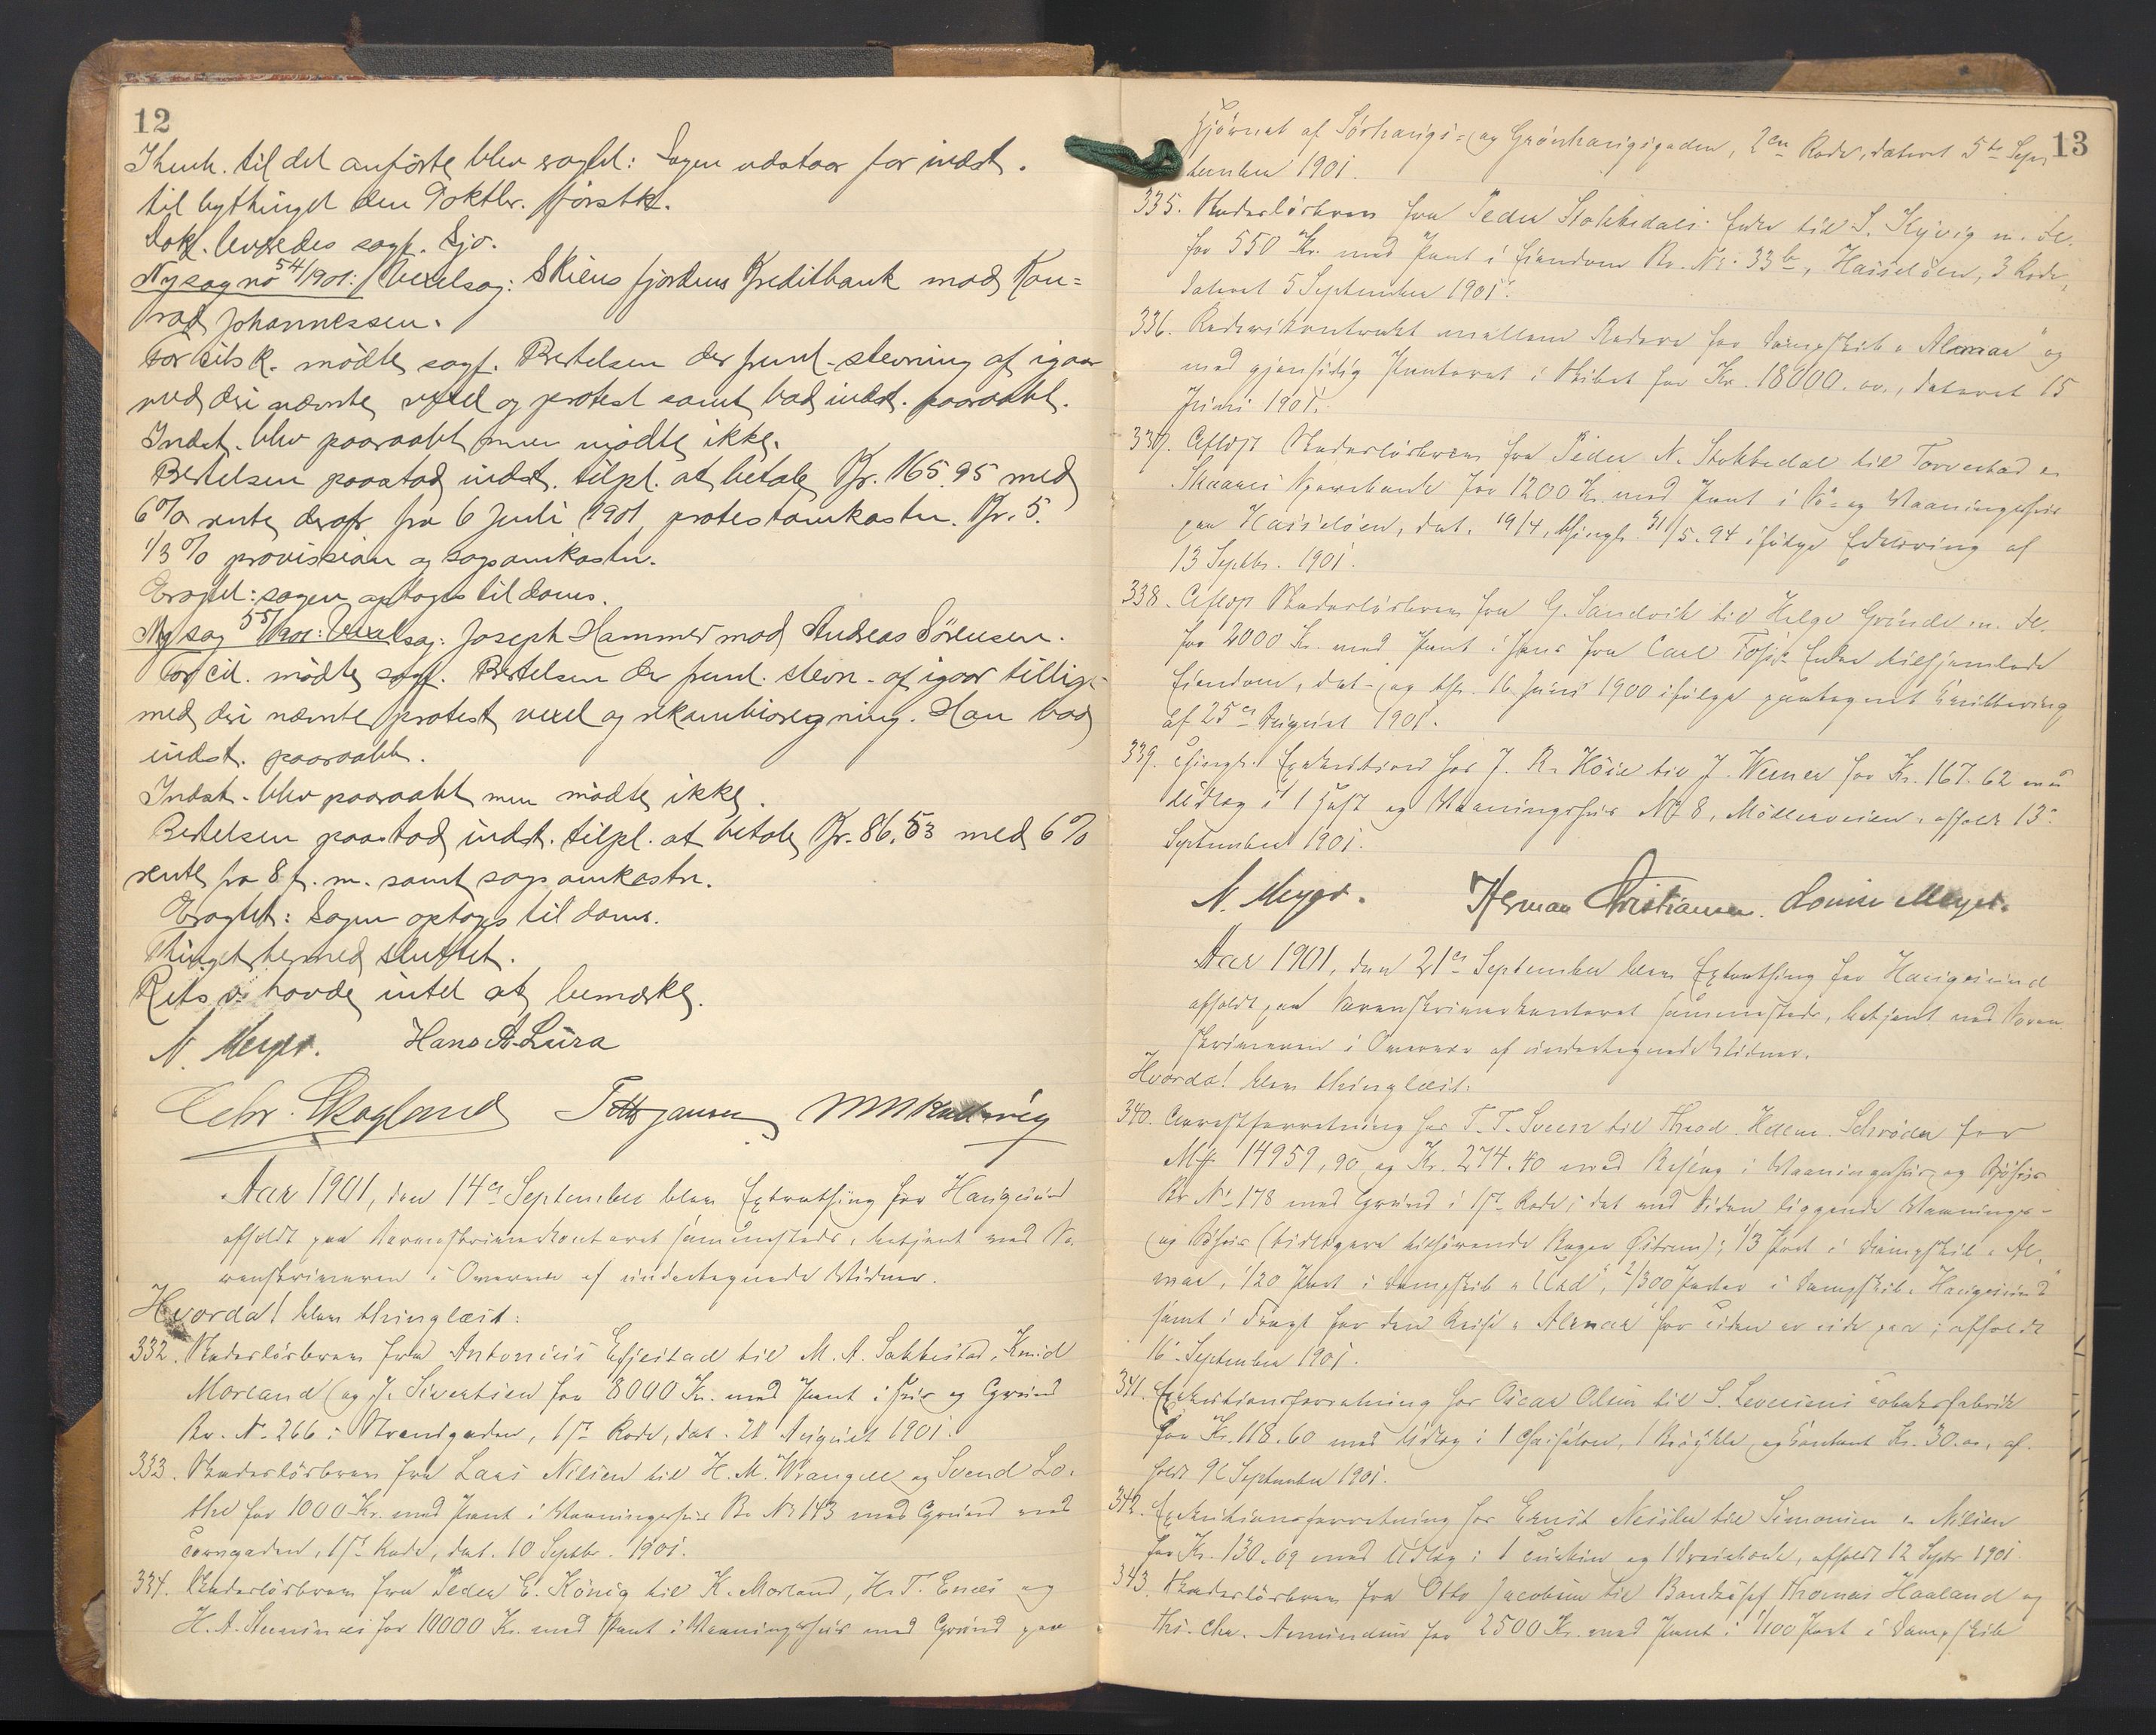 12
I henh. til det anførte blev eragtet: Sagen udstaar for indst.
til bythinget den 9 oktbr. førstk.
Dok. leveredes sagf. Sjo.
Ny sag no 54/1901: Vexelsag: Skiensfjordens Kreditbank mod Kon=
rad Johannessen.
For cits k. mødte sagf. Bertelsen der freml. stevning af igaar
med deri nævnte vexel og protest samt bad indst. paaraabt.
Indst. blev paaraabt men mødte ikke.
Bertelsen paastod indst. tilpl. at betale Kr. 165.95 med
6% rente deraf fra 6 Juli 1901, protestomkostn. Kr. 5.
1/3 % provission og sagsomkostn.
Eragtet: sagen optages til doms.
Ny sag 55/1901: Vexelsag: Joseph Hammer mod Andreas Sørensen.
For cit. mødte sagf. Bertelsen der freml. stevn. af igaar tillige-
med deri nævnte protest, vexel og rekambioregning. Han bad
indst. paaraabt.
Indst. blev paaraabt men mødte ikke.
Bertelsen paastod indst. tilpl. at betale Kr. 86.53 med 6%
rente fra 8 f. m. samt sagsomkostn.
Eragtet: Sagen optages til doms.
Thinget hermed sluttet.
Rets v. havde intet at bemærke.
N. Meyer. Hans A. Lura
Chr. Skogland
Aar 1901, den 14de September blev Extrathing for Haugesund
afholdt paa Sorenskriverkontoret sammesteds, betjent med So-
renskriveren i Overvær af undertegnede Vidner.
Hvorda! blev thinglæst:
332. Skadesløsbrev fra Antonius Eljestad til M. A. Sakkestad, Knud
Morland og J. Sivertsen for 8000 Kr. med Pant i Hus og Grund
Br. No 266 i Strandgaden, 1ste Rode, dat. 21 August 1901.
333. Skadesløsbrev fra Lars Nilsen til H. M. Wrangell og Svend Lo-
the for 1000 Kr. med Pant i Vaaningshus Br. No 143 med Grund ved
Torvgaden, 1ste Rode, dat. 10 Septbr. 1901.
334. Skadesløsbrev fra Peder E. König til K. Morland, H. T. Enæs og
H. A. for 10000 Kr. med Pant i Vaaningshus med Grund paa
13
Hjørnet af Sørhaugs- og Grønhaugsgaden, 2den Rode, dateret 5te Sep-
tember 1901.
335. Skadesløsbrev fra Peder Stokkedals Enke til S. Kyvig m. fl.
for 550 Kr. med Pant i Eiendom Br. No 33b, Hasseløen, 3 Rode,
dateret 5 September 1901.
336. Rederikontrakt mellem Redere for Dampskib "Alvmar" og
med gjensidig Panteret i Skibet for Kr. 18000.00, dateret 15
Juni 1901.
337. Aflyst Skadesløsbrev fra Peder N. Stokkedal til Torvestad &
Skaares Sparebank for 1200 Kr. med Pant i Sø- og Vaaningshus
paa Hasseløen, dat. 19/4, thingl. 31/5. 94 ifølge Erklæring af
13 Septbr. 1901.
338. Aflyst Skadesløsbrev fra G. Sandvik til Helge Grinde m. fl.
for 2000 Kr. med Pant i hans fra Carl Enke tilhjemlede
Eiendom, dat. og thgl. 16 Juni 1900 ifølge paategnet Kvittering
af 25de August 1901.
339. Thingl. Exekution hos J. R. Höie til J. Werner for Kr. 167.62 med
Udlæg i 1 Hest og Vaaningshus No 8, Møllerveien, afholdt 13de
September 1901.
N. Meyer. Herman Christiansen. Lovise Meyer.
Aar 1901, den 21de September blev Extrathing for Haugesund
afholdt paa Sorenskriverkontoret sammesteds, betjent med Soren-
skriveren i Overvær af undertegnede Vidner.
Hvorda! blev thinglæst:
340. Arrestforretning hos T. T. Sveen til Theod. Schröder for
Mk 14959,90 og Kr. 274.40 med Beslag i Vaaningshus og Søhus
Br No 178 med Grund i 1ste Rode, det ved Siden liggende Vaanings-
og Søhus (tidligere tilhørende Østrem); 1/3 Part i Dampskib "Al-
mar", 1/20 Part i Dampskib "Urd", 2/300 Parter i Dampskib "Haugesund"
samt i Fragt for den Reise "Alvmar" for Tiden er ude paa; afholdt
16 September 1901.
341. Exekutionsforretning hos Oscar Olsen til S. Levesens Tobaksfabrik
for Kr. 118.60 med Udlæg i 1 Chaiselon, 1 og kontant Kr. 30.00, af-
holdt 9de September 1901.
342. Exekutionsforretning hos Ernst Nessler til Simonsen & Nilsen
for Kr. 130.09 med Udlæg i 1 og 1 Dreiebænk, afholdt 12 Septr 1901.
343. Skadesløsbrev fra Otto Jacobsen til Bankchef Thomas Haaland og
Ths. Chr. Amundsen for 2500 Kr. med Pant i 1/100 Part i Dampskib